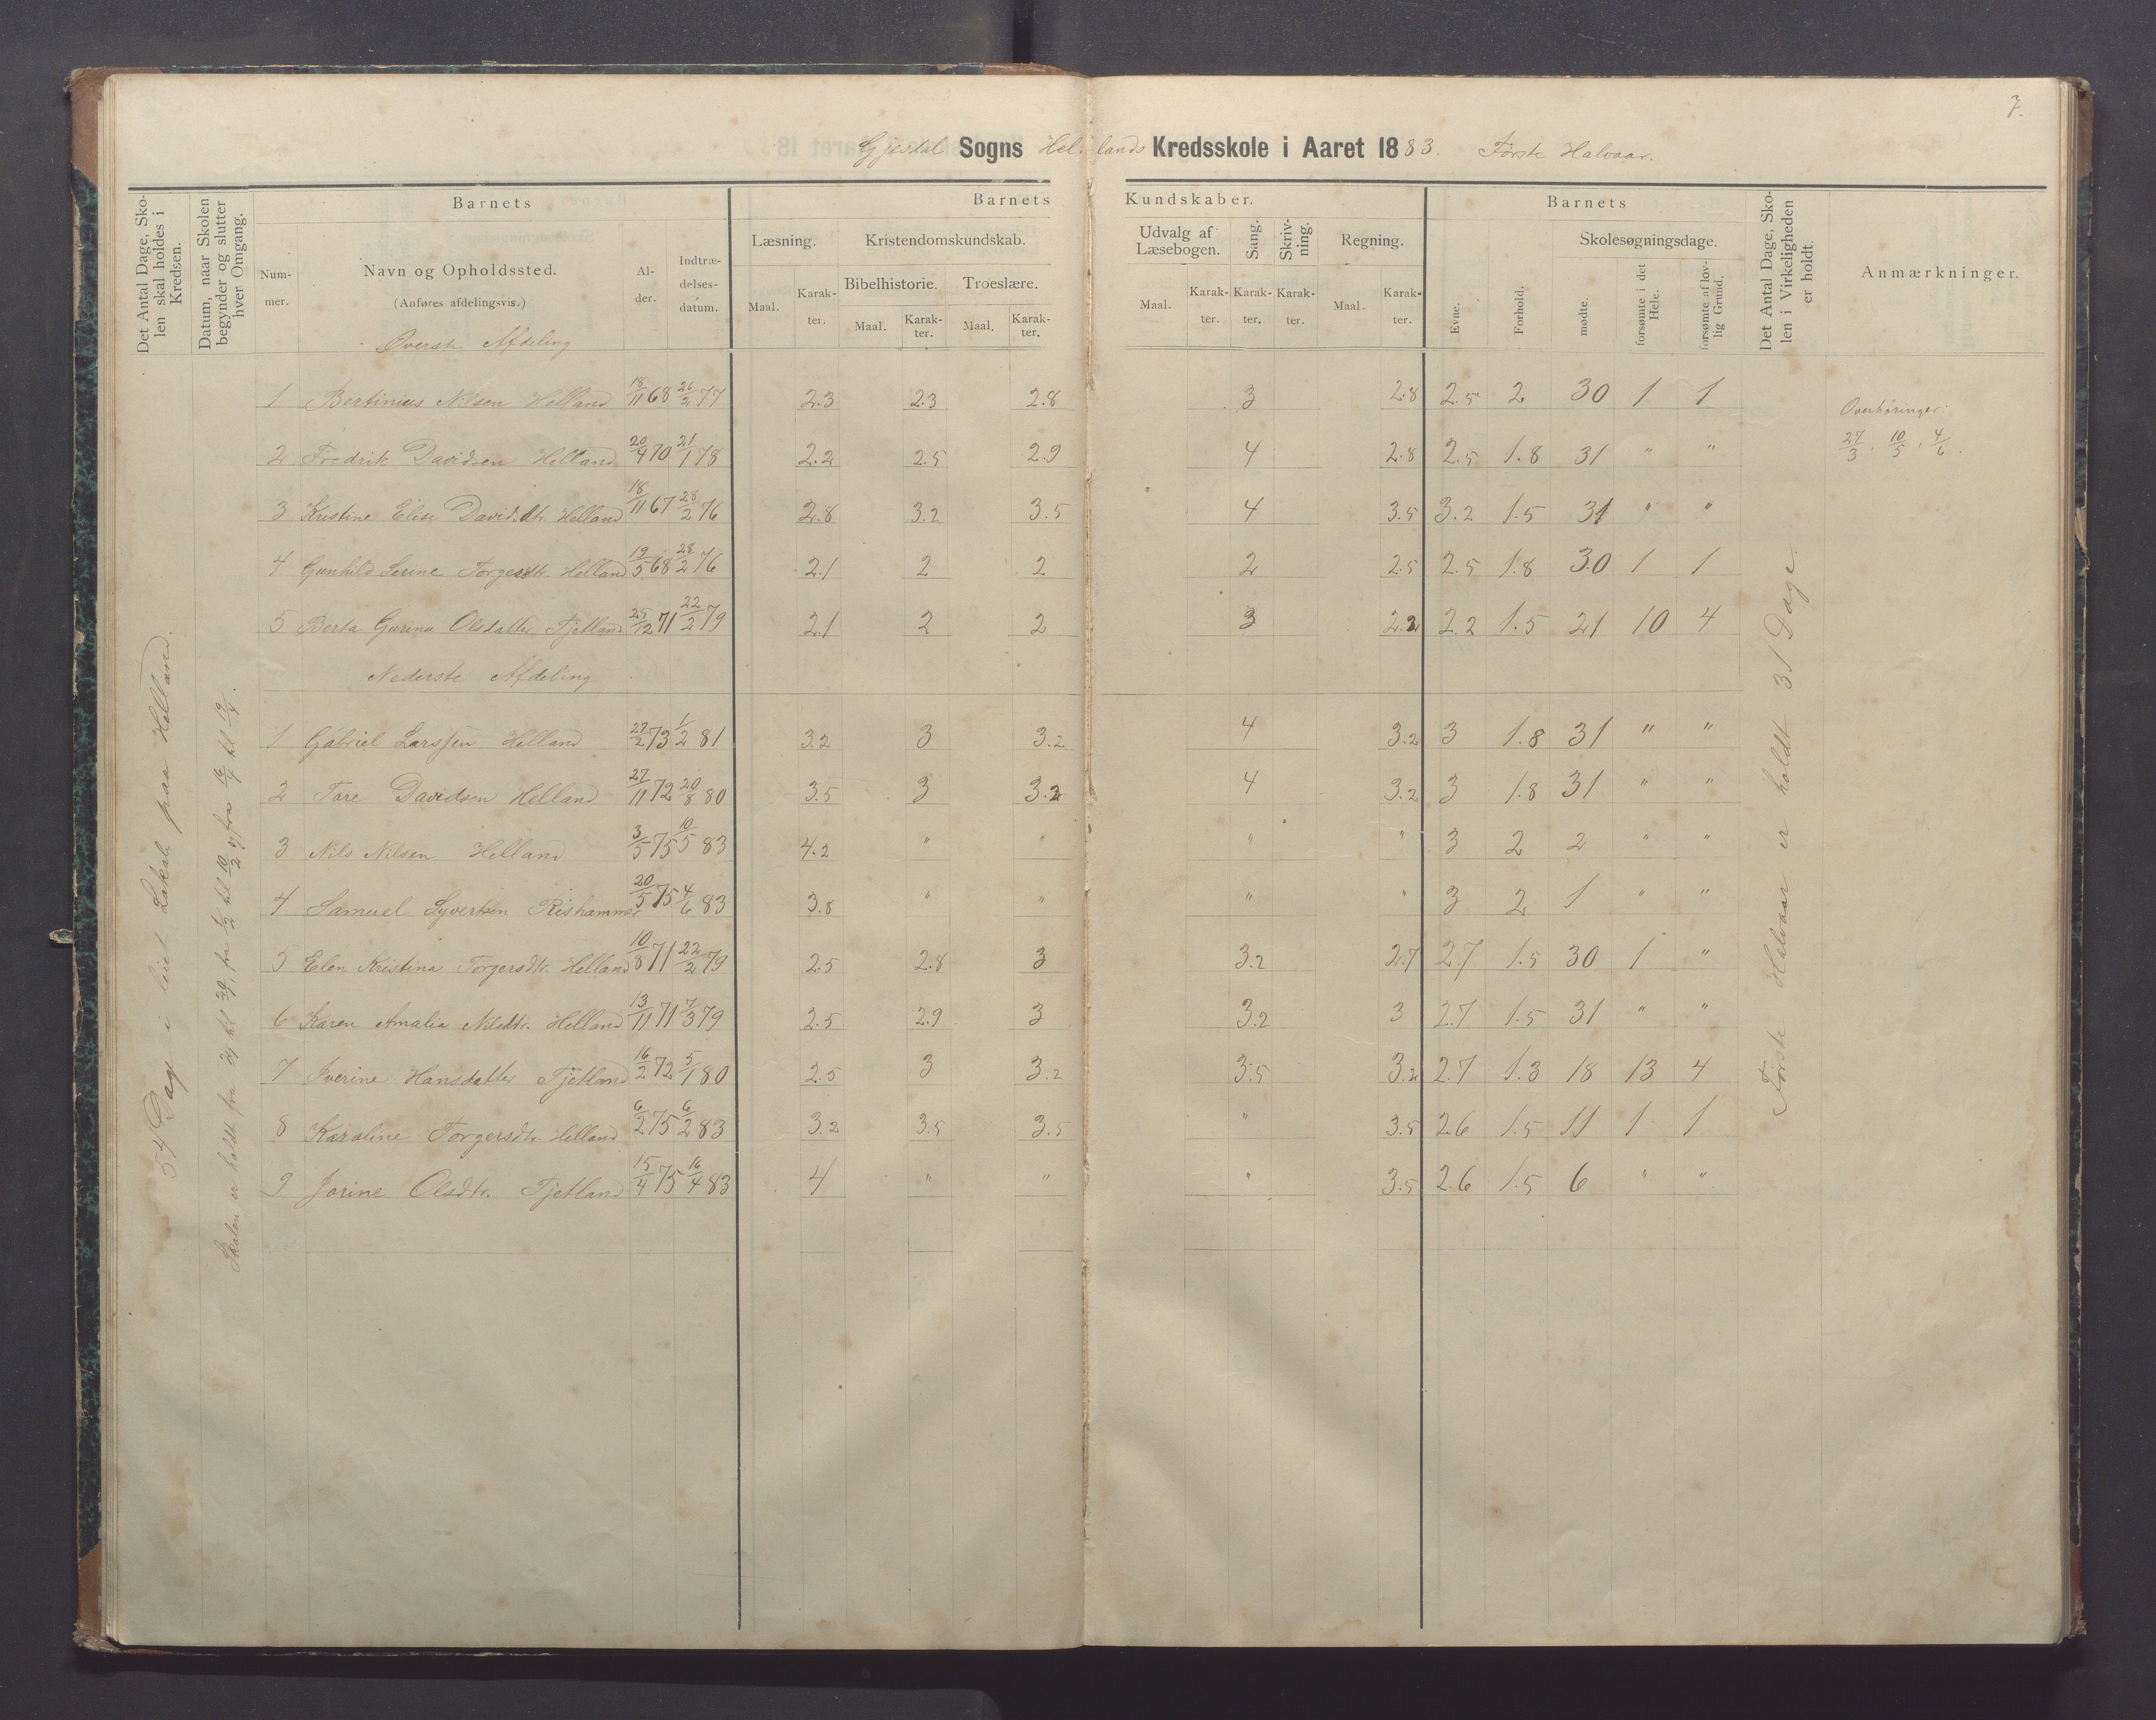 7.
Gjesdal Sogns Hellands Kredsskole i Aaret 1883. Første Halvaar.
Det Antal Dage, Skolen skal holdes i Kredsen.
Datum, naar Skolen begynder og slutter hver Omgang.
Barnets
Nummer.
Navn og Opholdssted.
(Anføres afdelingsvis.)
Alder.
Indtrædelsesdatum.
Barnets Kundskaber.
Læsning.
Maal. Karakter.
Kristendomskundskab.
Bibelhistorie. Troeslære.
Maal. Karakter. Maal. Karakter.
Udvalg af Læsebogen.
Maal. Karakter.
Sang. Karakter.
Skrivning. Karakter.
Regning.
Maal. Karakter.
Barnets
Evne. Forhold.
Skolesøgningsdage.
mødte. forsømte i det Hele. forsømte af lovlig Grund.
Det Antal Dage, Skolen i Virkeligheden er holdt.
Anmærkninger.
54 Dage i leiet Lokale paa Helland.
Første Halvaar er holdt 31 Dage.
Overhøringer:
27/3, 10/5, 4/6.
Øverste Afdeling
1 Bertinius Nilsen Helland 18/11 68 26/2 77 2.3 2.3 2.8 3 2.8 2.5 2 30 1 1
2 Fredrik Davidsen Helland 20/9 70 21/1 78 2.2 2.5 2.9 4 2.8 2.5 1.8 31 " "
3 Kristine Elise Davidsdtr. Helland 18/11 67 28/2 76 2.8 3.2 3.5 4 3.5 3.2 1.5 31 " "
4 Gunhild Serine Torgersdtr. Helland 19/5 68 28/2 76 2.1 2 2 2 2.5 2.5 1.8 30 1 1
5 Berta Gurina Olsdatter Fjetland 25/12 71 22/2 79 2.1 2 2 3 2.2 2.2 1.5 21 10 4
Nederste Afdeling
1 Gabriel Larssen Helland 27/2 73 1/2 81 3.2 3 3.2 4 3.2 3 1.8 31 " "
2 Tore Davidsen Helland 27/11 72 20/8 80 3.5 3 3.2 4 3.2 3 1.8 31 " "
3 Nils Nilsen Helland 3/5 75 10/5 83 4.2 " " " " 3 2 2 " "
4 Samuel Syvertsen Rishammer 20/5 75 4/6 83 3.8 " " " " 3 2 1 " "
5 Elen Kristina Torgersdtr. Helland 10/8 71 22/2 79 2.5 2.8 3 3.2 2.7 2.7 1.5 30 1 "
6 Karen Amalia Nilsdtr. Helland 13/11 71 7/3 79 2.5 2.9 3 3.2 3 2.7 1.5 31 " "
7 Iverine Hansdatter Fjetland 16/2 72 5/1 80 2.5 3 3.2 3.5 3.2 2.7 1.3 18 13 4
8 Karoline Torgersdtr. Helland 6/2 75 6/2 83 3.2 3.5 3.5 " 3.5 2.6 1.5 11 1 1
9 Jorine Olsdtr. Fjetland 15/4 75 16/4 83 4 " " " 3.5 2.6 1.5 6 " "